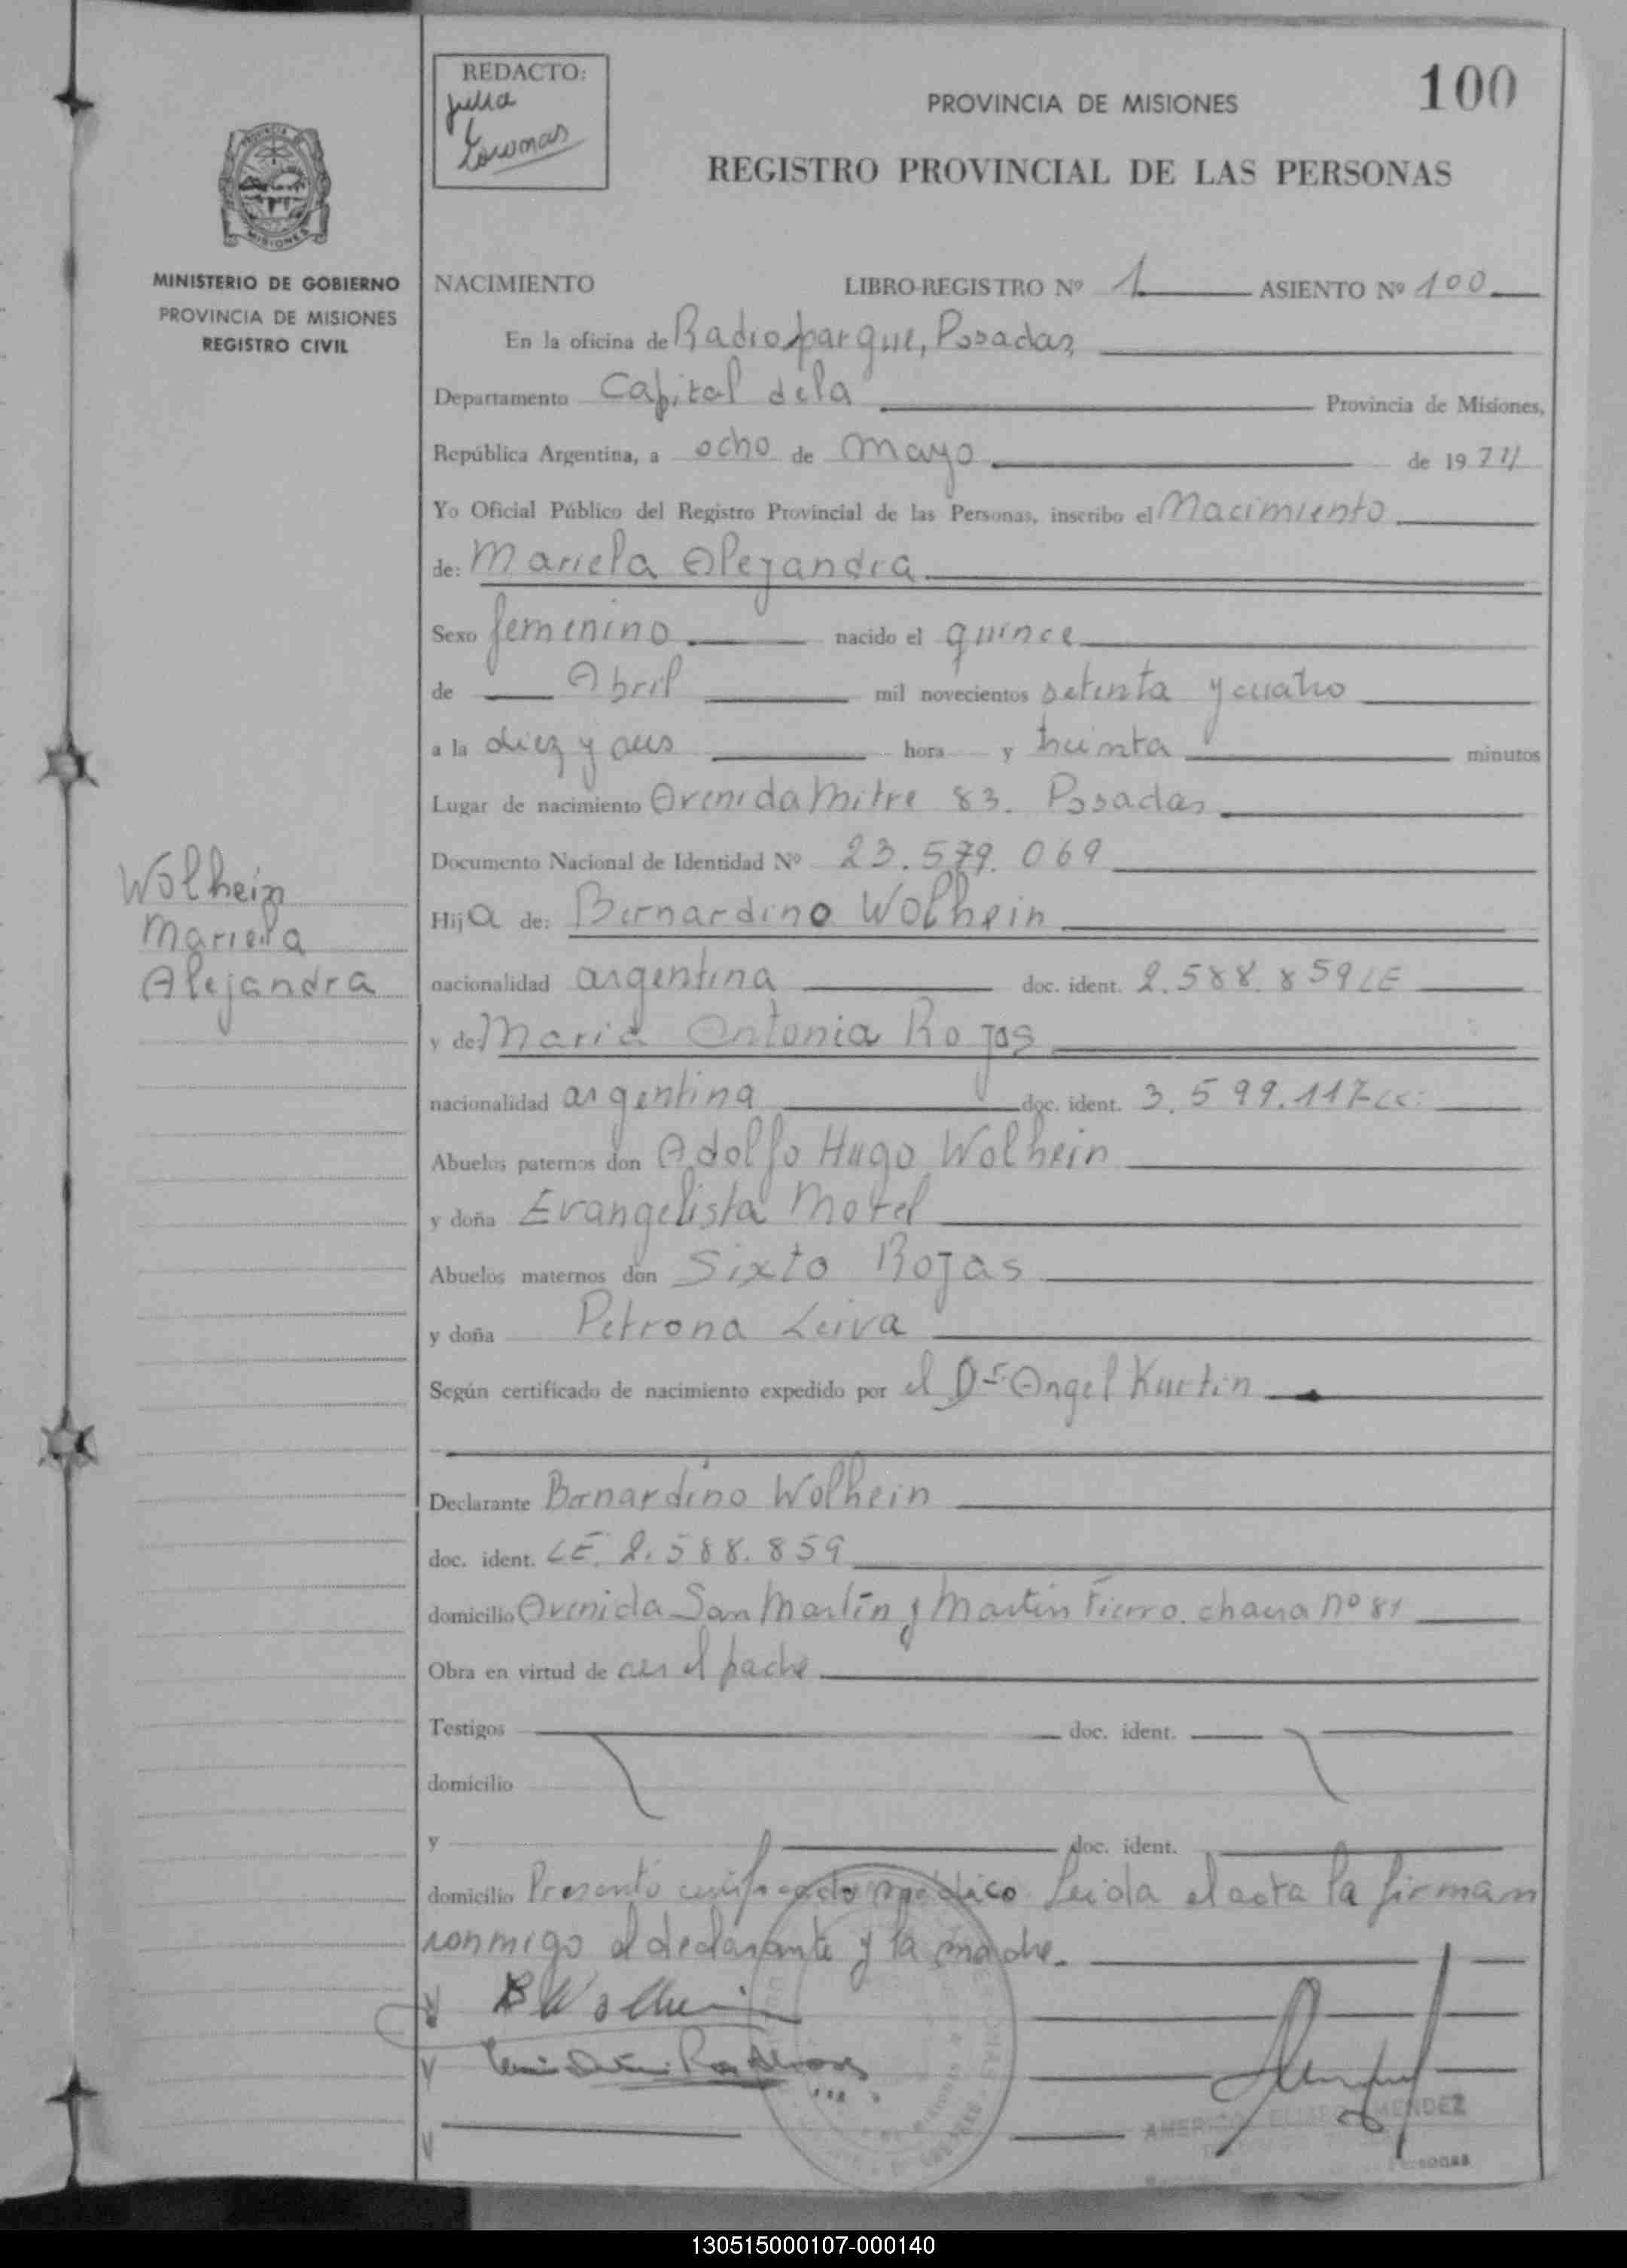 REDACTO:
Julia
PROVINCIA DE MISIONES
100
REGISTRO PROVINCIAL DE LAS PERSONAS
MISIONES
MINISTERIO DE GOBIERNO
PROVINCIA DE MISIONES
REGISTRO CIVIL
NACIMIENTO LIBRO-REGISTRO Nº 1 ASIENTO Nº 100
En la oficina de Radioparque, Posadas
Departamento Capital dela Provincia de Misiones,
República Argentina, a ocho de mayo de 1974
Yo Oficial Público del Registro Provincial de las Personas, inscribo el Nacimiento
de: Mariela Alejandra
Sexo femenino nacido el quince
de Abril mil novecientos setenta y cuatro
a la diez y seis hora y treinta minutos
Lugar de nacimiento Avenida Mitre 83. Posadas
Documento Nacional de Identidad Nº 23.579.069
Wolhein
Mariela
Alejandra
Hija de: Bernardino Wolhein
nacionalidad argentina doc. ident. 2.588.859 LE
y de: Maria Antonia Rojas
nacionalidad argentina doc. ident. 3.599.117
Abuelos paternos don Adolfo Hugo Wolhein
y doña Evangelista Motel
Abuelos maternos don Sixto Rojas
y doña Petrona Leiva
Según certificado de nacimiento expedido por el Dr Angel Kurtin
Declarante Bernardino Wolhein
doc. ident. LE. 2.588.859
domicilio Avenida San Martín y Martin Fierro. chacra nº 81
Obra en virtud de ser el padre
Testigos doc. ident.
domicilio
y doc. ident.
domicilio Presentó certificado médico Leida el acta la firman
conmigo el declarante y la madre.
B Wolhein
MENDEZ
130515000107-000140